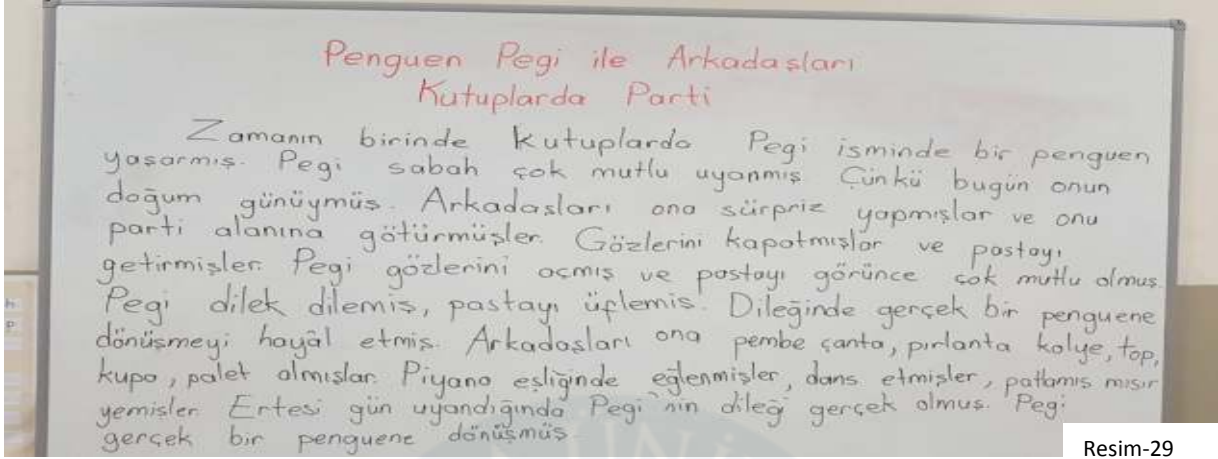 Penguen Pegi ile Arkadaşları
Kutuplarda Parti
Zamanın birinde Kutuplarda Pegi isminde bir penguen
yaşarmış. Pegi sabah çok mutlu uyanmış. Çünkü bugün onun
doğum günüymüş. Arkadaşları ona sürpriz yapmışlar ve onu
parti alanına götürmüşler. Gözlerini kapatmışlar ve pastayı
getirmişler. Pegi gözlerini açmış ve pastayı görünce çok mutlu olmuş.
Pegi dilek dilemiş, pastayı üflemiş. Dileğinde gerçek bir penguene
dönüşmeyi hayâl etmiş. Arkadaşları ona pembe çanta, pırlanta kolye, top,
kupa, palet almışlar. Piyano eşliğinde eğlenmişler, dans etmişler, patlamış mısır
yemişler. Ertesi gün uyandığında Pegi'nin dileği gerçek olmuş. Pegi
gerçek bir penguene dönüşmüş.
Resim-29